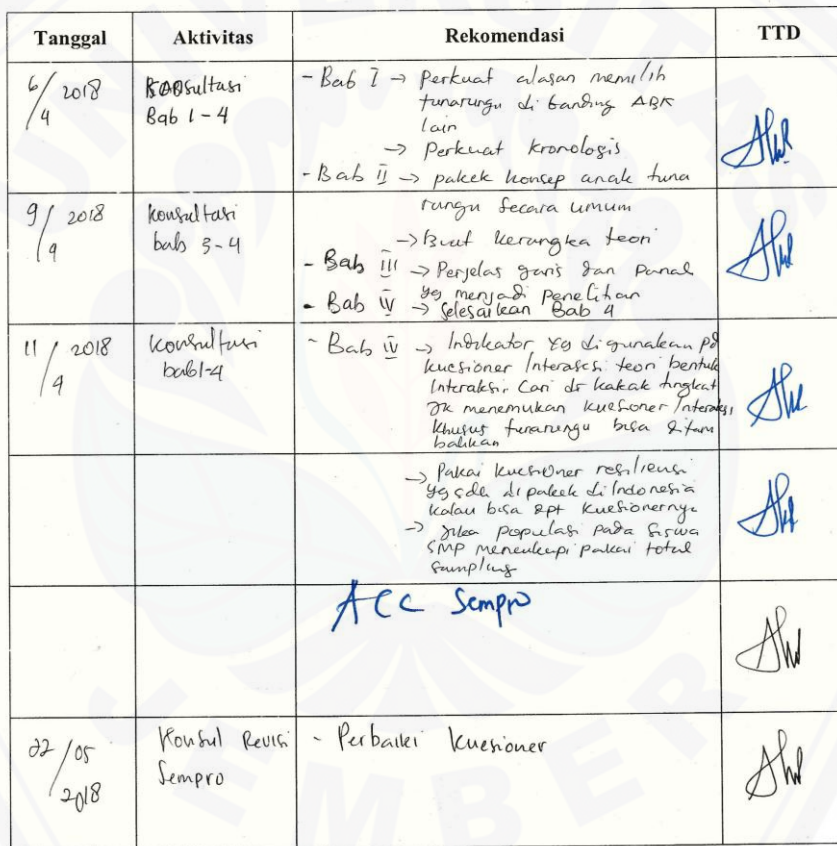 Tanggal Aktivitas Rekomendasi TTD
6/4 2018 Konsultasi Bab 1-4
- Bab I → Perkuat alasan memilih
tunarungu di banding ABK
lain
→ Perkuat kronologis
- Bab II → pakek konsep anak tuna
rungu secara umum
9/4 2018 konsultasi bab 3-4
→ Buat kerangka teori
- Bab III → Perjelas garis dan panah
yg menjadi penelitian
- Bab IV → selesaikan Bab 4
11/4 2018 konsultasi bab 1-4
- Bab IV → Indikator yg digunakan pd
kuesioner Interaksi teori bentuk
Interaksi. Cari dr kakak tingkat
jk menemukan kuesioner Interaksi
khusus tunarungu bisa ditam
bahkan
→ Pakai kuesioner resiliensi
yg sdh dipakek di Indonesia
kalau bisa dpt kuesionernya
→ Jika populasi pada siswa
SMP mencukupi pakai total
sampling
ACC Sempro
22/05 2018 Konsul Revisi Sempro
- Perbaiki kuesioner
UNIVERSITAS
JEMBER